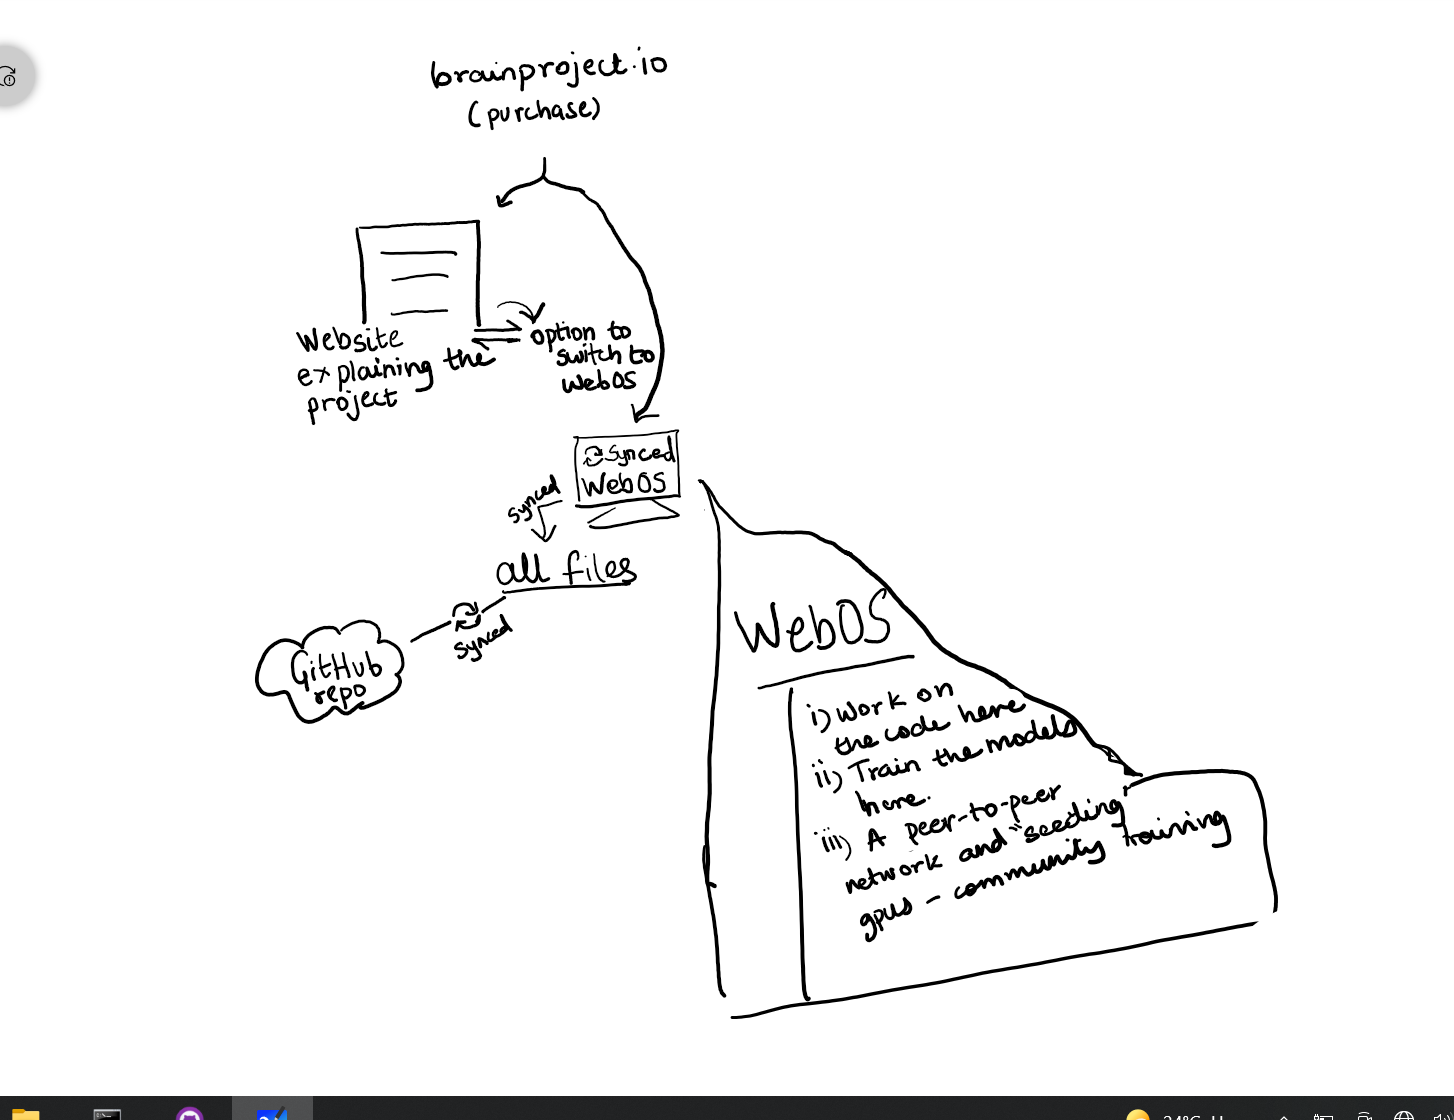 brainproject.io
(purchase)
Website
explaining the
project
option to
switch to
WebOS
Synced
WebOS
synced
all files
synced
GitHub
repo
WebOS
i) Work on
the code here
ii) Train the models
here.
iii) A peer-to-peer
network and "seeding"
gpus - community training